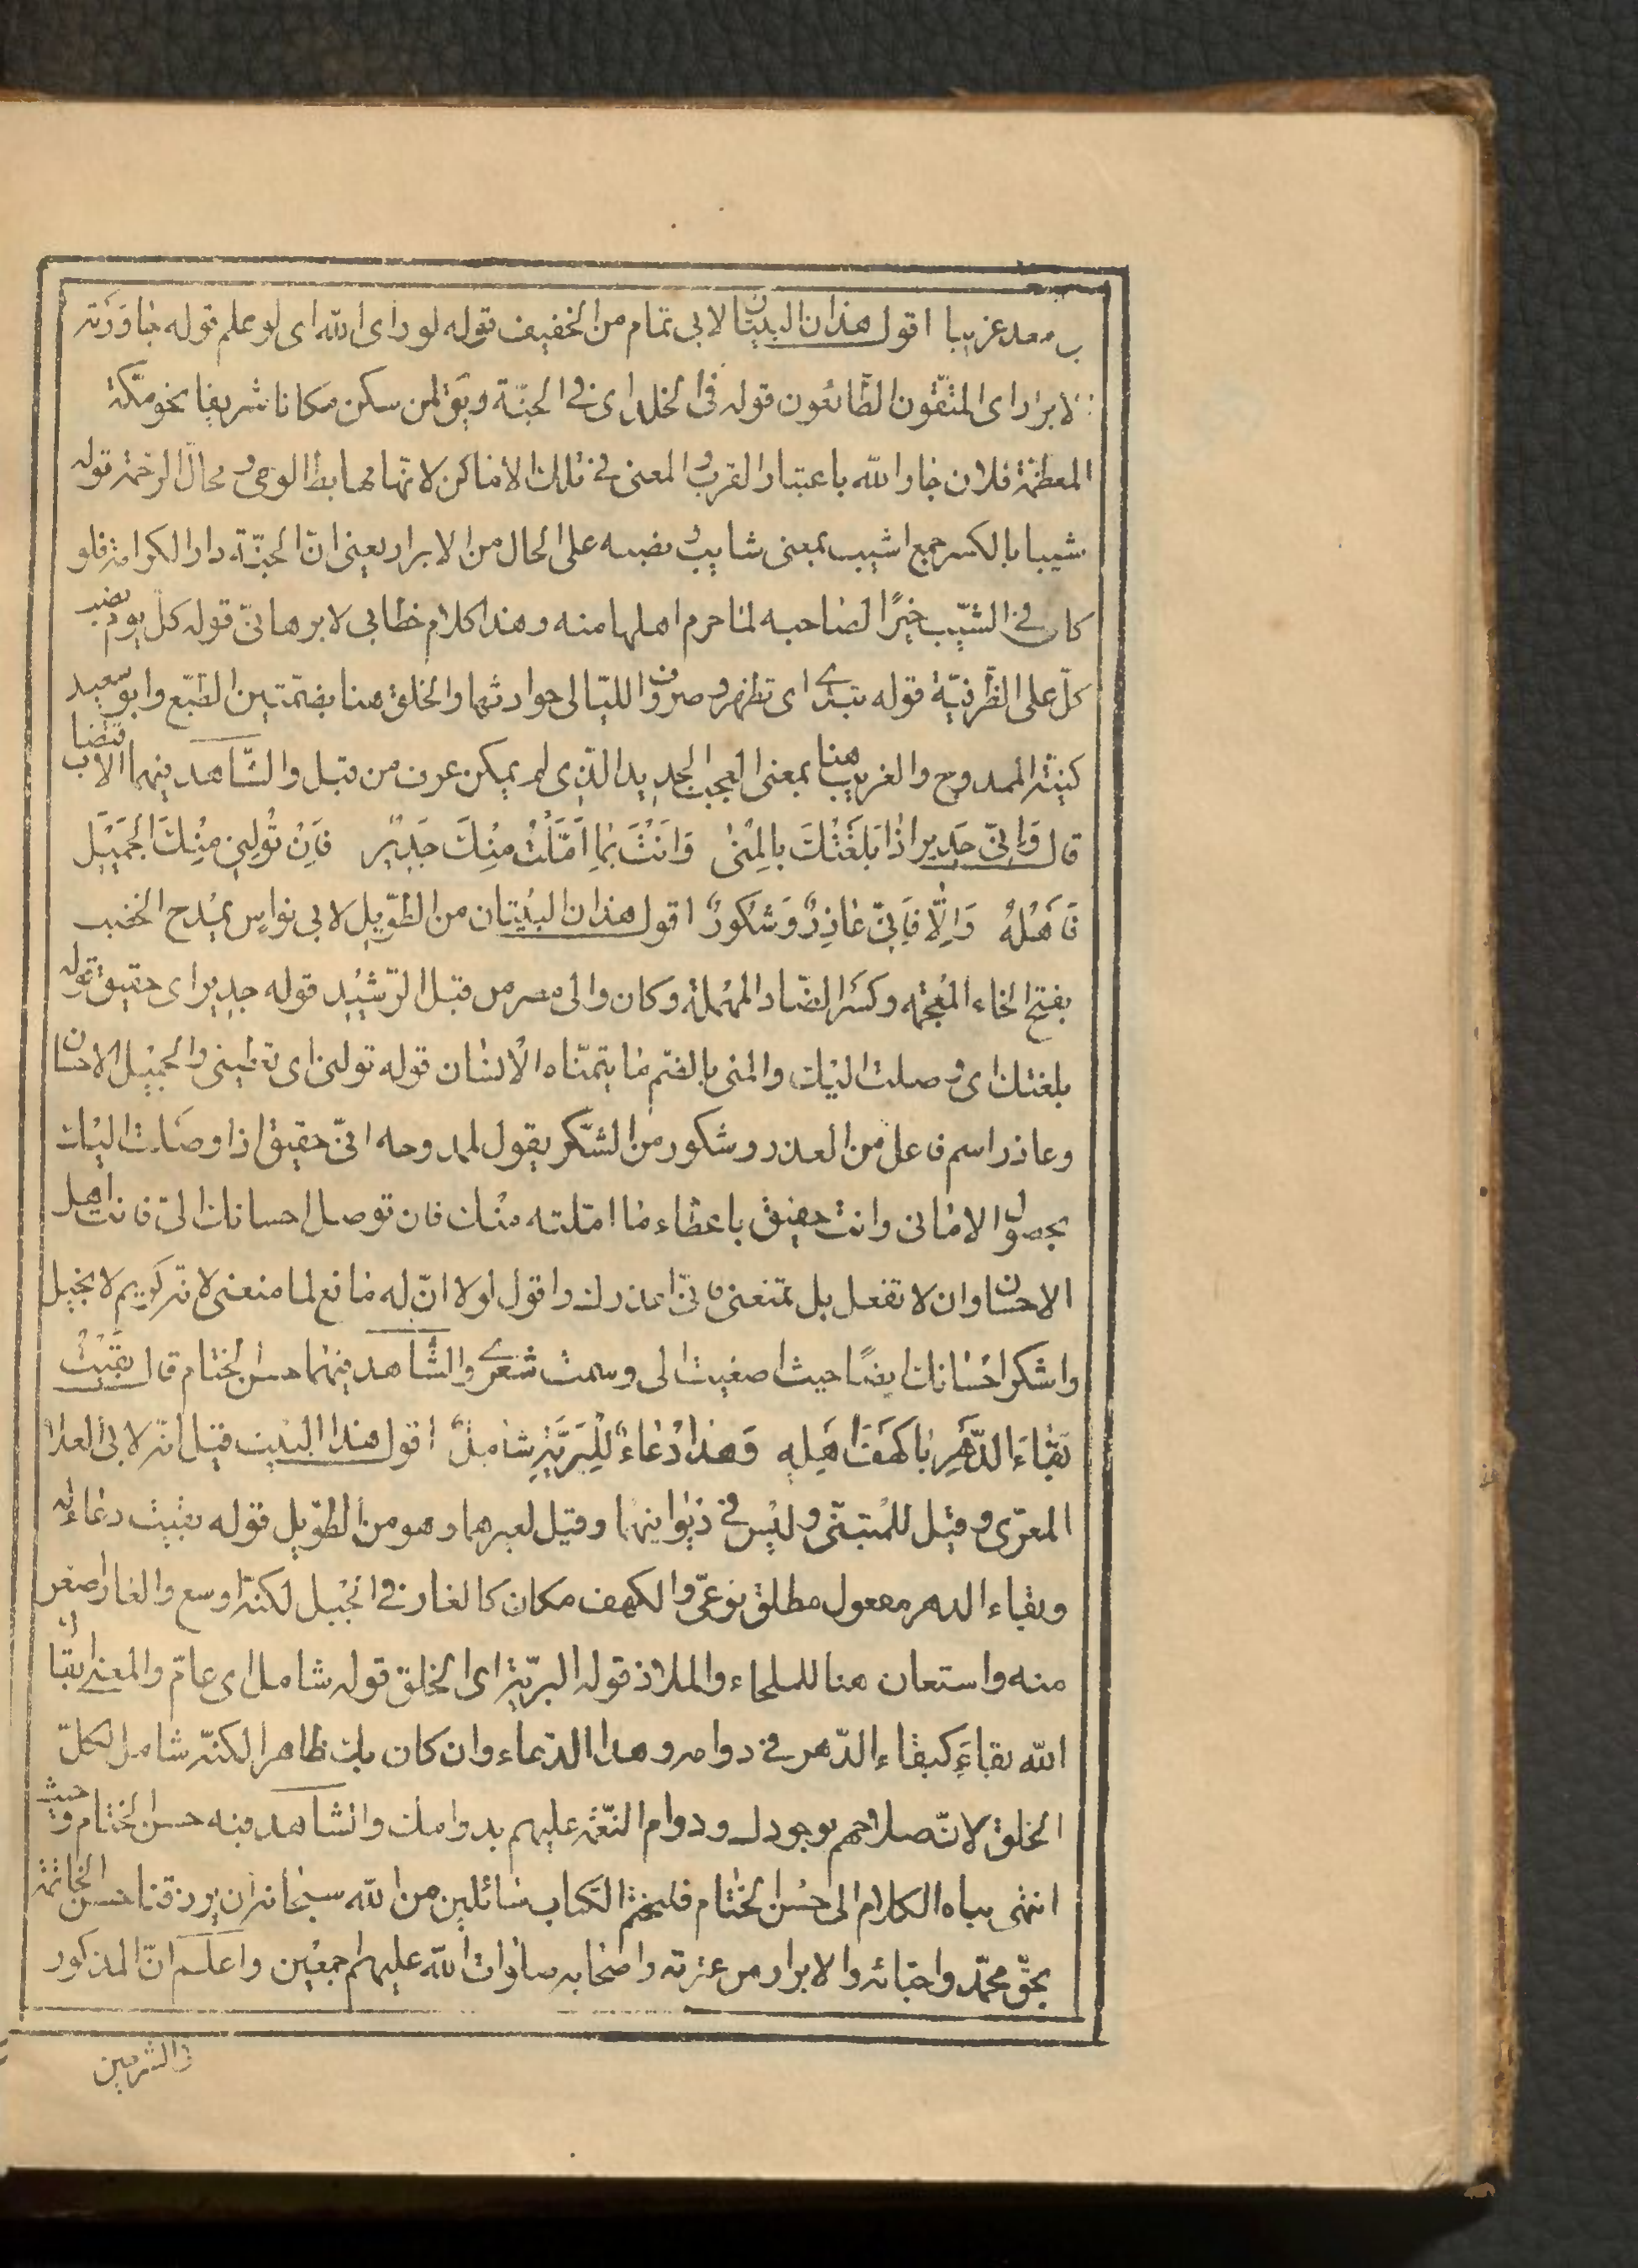 معد غريبا اقول هذان البيتان لابى تمام من الخفيف قوله لو راى الله اى لو علم قوله جاورته
الابرار اى المتّقون الطّائعون قوله فى الخلد اى فى الجنّة ويق لمن سكن مكانا شريفا نحو مكّة
المعظّمة فلان جار الله باعتبار القرب والمعنى فى تلك الاماكن لانّها مهابط الوحى ومحالّ الرّحمة قوله
شيبا بالكسر جمع اشيب بمعنى شايب ونصبه على الحال من الابرار يعنى انّ الجنّة دار الكرامة فلو
كان فى الشّيب خيرًا لصاحبه لما حرم اهلها منه وهذا كلام خطابى لا برهانىّ قوله كلّ يوم نصب
كلّ على الظّرفيّة قوله تبدى اى تظهر وصروف اللّيالى حوادثها والخلق هنا بضمّتين الطّبع وابو سعيد
كنية الممدوح والغريب هنا بمعنى العجب الجديد الّذى لم يكن عرف من قبل والشّاهد فيهما الاقتضاب
قال وَاِنّى جَدير اذا بَلَغْتُكَ بالمِنىٰ وَاَنْتَ بِمٰا اَمَّلْتُ مِنْكَ جَدِيْر فَاِنْ تُولِنى مِنْكَ الجَميْلَ
فَاَهْلُهُ وَاِلّٰا فَاِنّى عٰاذِرٌ وَشَكُورٌ اقول هذان البيتان من الطّويل لابى نواس يمدح الخصيب
بفتح الخاء المعجمه وكسر الصّاد المهملة وكان والى مصر من قبل الرّشيد قوله جدير اى حقيق قوله
بلغتك اى وصلت اليك والمنى بالضّم ما يتمنّاه الانسان قوله تولنى اى تعطينى والجميل الاحسان
وعاذر اسم فاعل من العذر وشكور من الشّكر يقول لممدوحه انّى حقيق اذا وصلت اليك
بحصول الامانى وانت حقيق باعطاء ما امّلته منك فان توصل احسانك الىّ فانت اهل
الاحسان وان لا تفعل بل تمنعنى فانّى اعذرك واقول لولا انّ له مانع لما منعنى لانّه كريم لا بخيل
واشكر احسانك ايضًا حيث اصغيت الى وسمت شعرى والشّاهد فيهما حسن الختام قال بَقَيْتَ
بَقٰاءَ الدَّهْرِ يا كَهْفَ اَهْلِهِ وَهٰذا دُعٰاءٌ لِلْبَرِيَّةِ شامِلٌ اقول هذا البيت قيل انّه لابى العلا
المعرّى وقيل للمتنبّى وليس فى ديوانيهما وقيل لغيرهما وهو من الطّويل قوله بقيت دعاء له
وبقاء الدهر مفعول مطلق نوعىّ والكهف مكان كالغار فى الجبل لكنّه اوسع والغار اصغر
منه واستعان هنا للملجاء والملاذ قوله البريّة اى الخلق قوله شامل اى عامّ والمعنى ابقاك
الله بقاءً كبقاء الدّهر فى دوامه وهذا الدّعاء وان كان بك ظاهرا لكنّه شامل لكلّ
الخلق لانّ صلاحهم بوجودك ودوام النّعمة عليهم بدوامك والشاهد فيه حسن الختام وحيث
انتهى بناه الكلام الى حسن الختام فليختم الكتاب سائلين من الله سبحانه ان يرزقنا حسن الخاتمة
بحقّ محمّد واحبّائه والابرار من عترته واصحابه صلوات الله عليهم اجمعين واعلم انّ المذكور